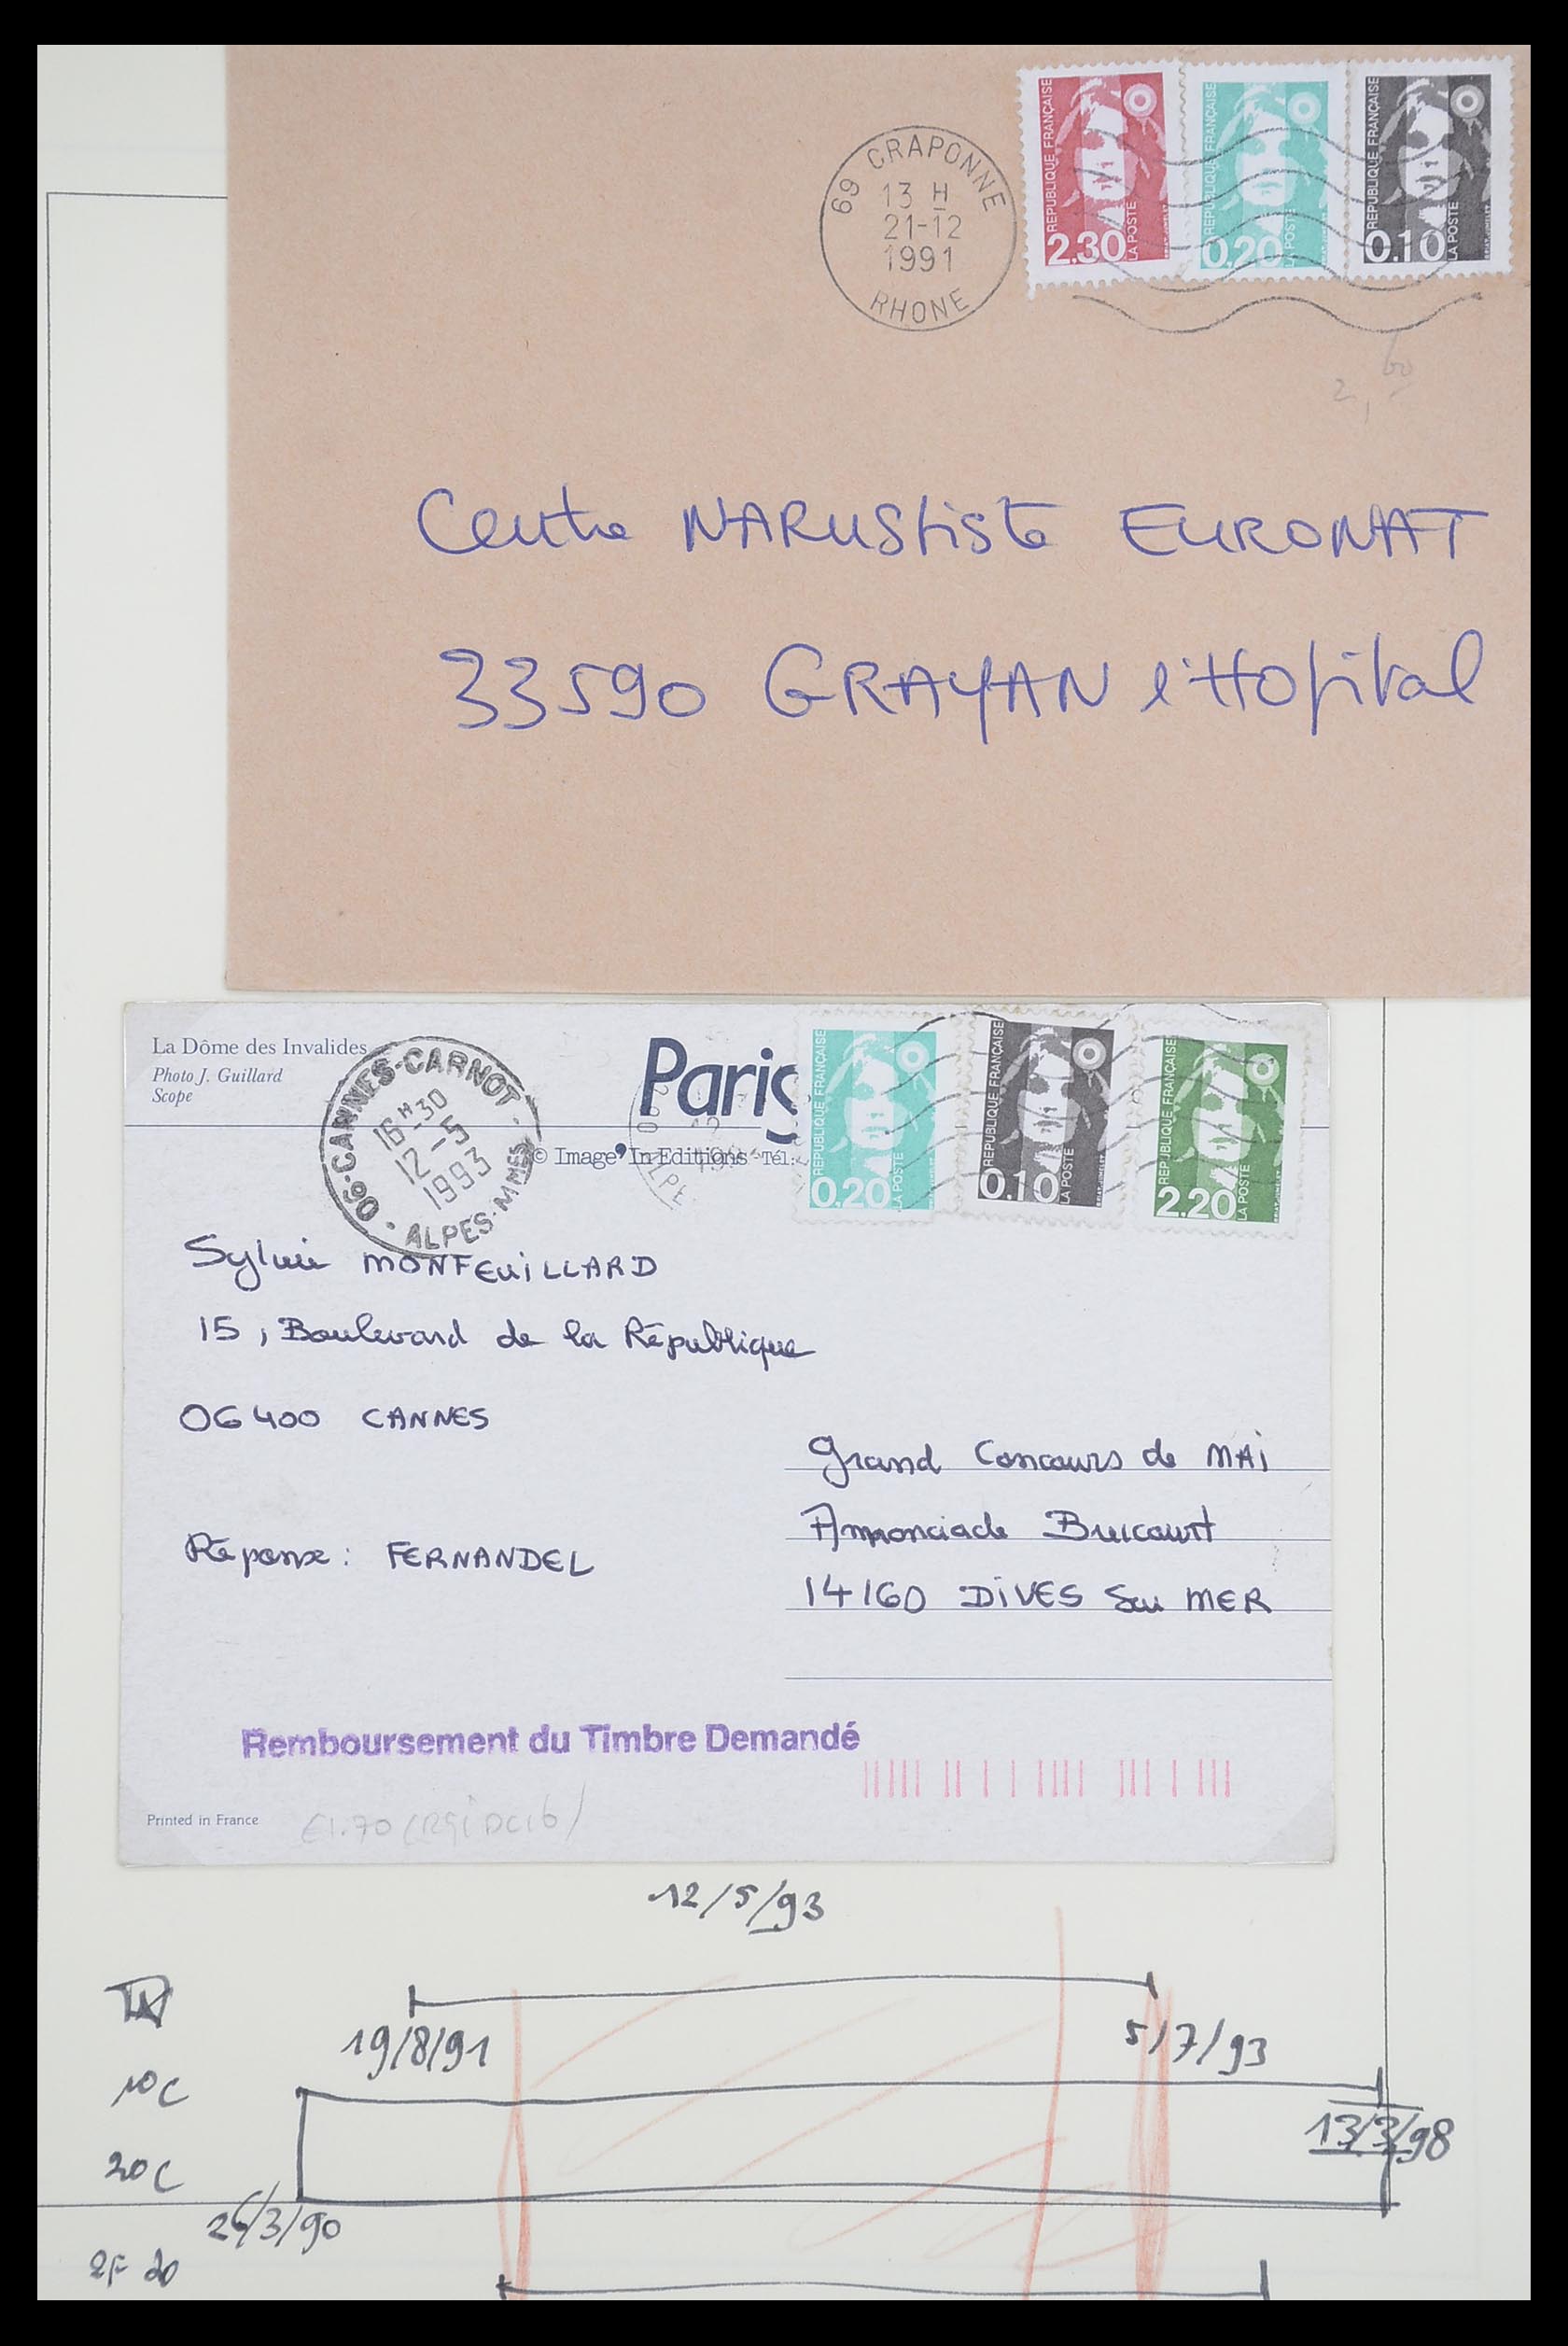 69 CRAPONNE
13 H
21-12
1991
RHONE
REPUBLIQUE FRANÇAISE
2.30
LA POSTE
REPUBLIQUE FRANÇAISE
0.20
LA POSTE
REPUBLIQUE FRANÇAISE
0.10
LA POSTE
2,60
Centre NARUStiste EURONAT
33590 GRAYAN l'Hopital
La Dôme des Invalides
Photo J. Guillard
Scope
06-CANNES-CARNOT
16H-30
12-5
1993
ALPES-MMES
Paris
© Image'In Editions - Tél:
REPUBLIQUE FRANÇAISE
0.20
LA POSTE
REPUBLIQUE FRANÇAISE
0.10
LA POSTE
REPUBLIQUE FRANÇAISE
2.20
LA POSTE
Sylvie MONFEUILLARD
15, Boulevard de la République
06400 CANNES
Réponse : FERNANDEL
Grand Concours de MAI
Annonciade Bruicourt
14160 DIVES Sur MER
Remboursement du Timbre Demandé
Printed in France
12/5/93
19/8/91
5/7/93
10C
13/3/98
20C
26/3/90
2F 20